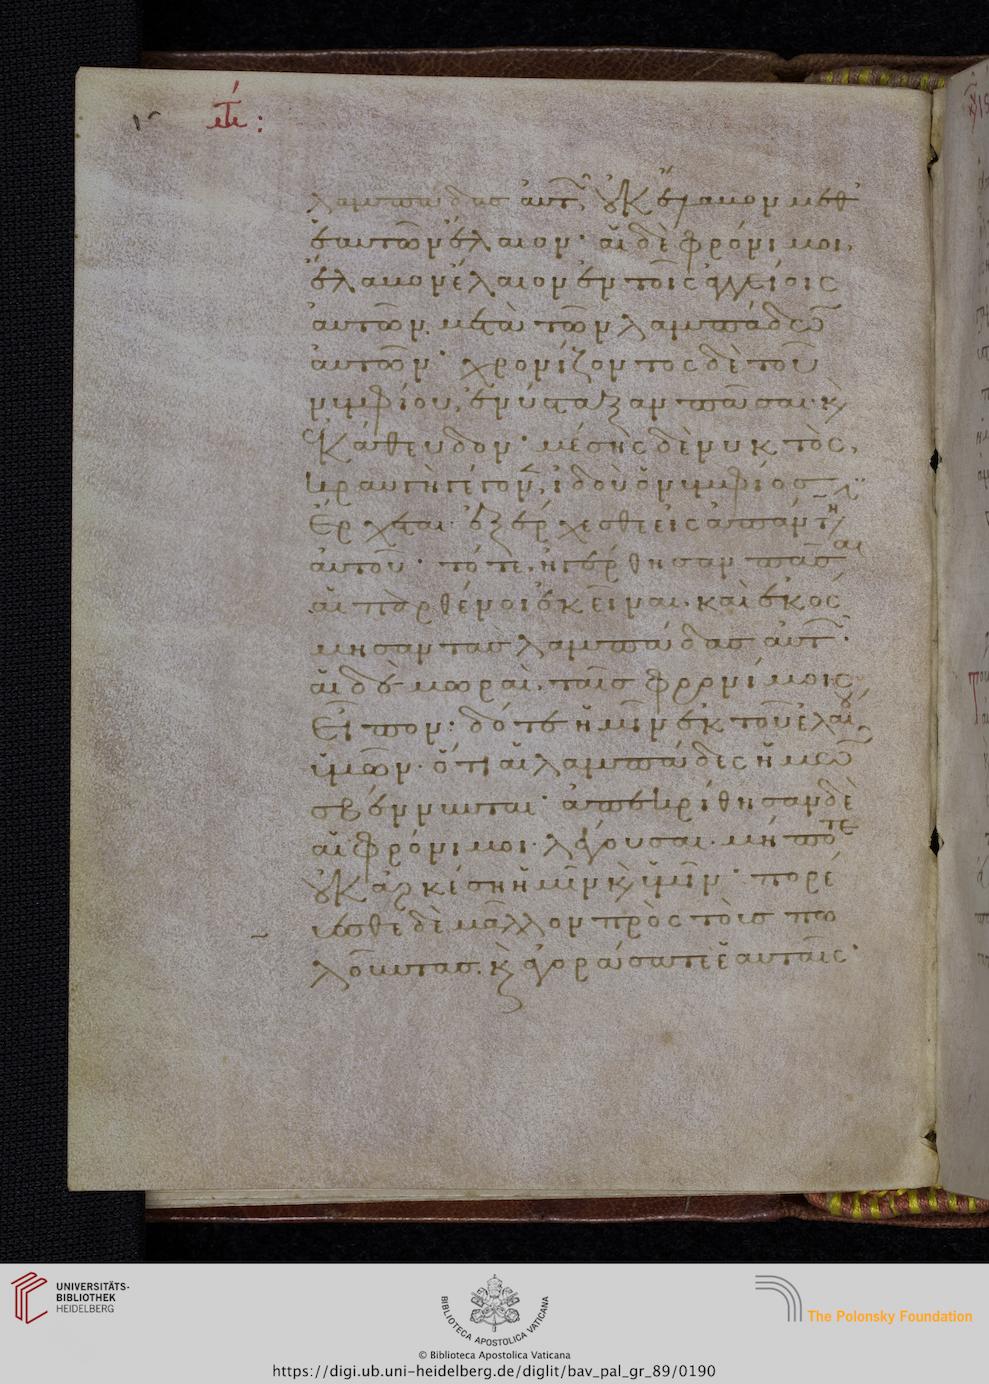 λαμπάδας αὐτ, οὐκ ἔλαβον μεθ
ἑαυτῶν ἔλαιον· αἱ δὲ φρόνιμοι,
ἔλαβον ἔλαιον ἐν τοῖς ἀγγείοις
αὐτῶν μετὰ τῶν λαμπάδω
αὐτῶν· χρονίζοντος δὲ τοῦ
νυμφίου, ἐνύσταξαν πᾶσαι· κ
ἐκάθευδον· μέσης δὲ νυκτὸς,
κραυγὴ γέγονεν, ἰδοὺ ὁ νυμφίος
ἔρχεται· ἐξέρχεσθε εἰς ἀπάντη
αὐτοῦ· τότε, ἠγέρθησαν πᾶσαι
αἱ παρθένοι ἐκεῖναι· καὶ ἐκός
μησαν τας λαμπάδας αὐτ·
αἱ δὲ μωραὶ, ταῖς φρονίμοις
εἶπον· δότε ἡμῖν ἐκ τοῦ ἐλαίου
ὑμῶν· ὅτι αἱ λαμπάδες ἡμῶ
σβέννυνται· ἀπεκρίθησαν δὲ
αἱ φρόνιμοι· λέγουσαι· μήποτε
οὐκ ἀρκέσῃ ἡμῖν κ ὑμῖν· πορέ
υεσθε δὲ μᾶλλον πρὸς τοὺς πω
λοῦντας. κ ἀγοράσατε ἑαυταῖς·
UNIVERSITÄTS-
BIBLIOTHEK
HEIDELBERG
BIBLIOTECA APOSTOLICA VATICANA
The Polonsky Foundation
© Biblioteca Apostolica Vaticana
https://digi.ub.uni-heidelberg.de/diglit/bav_pal_gr_89/0190